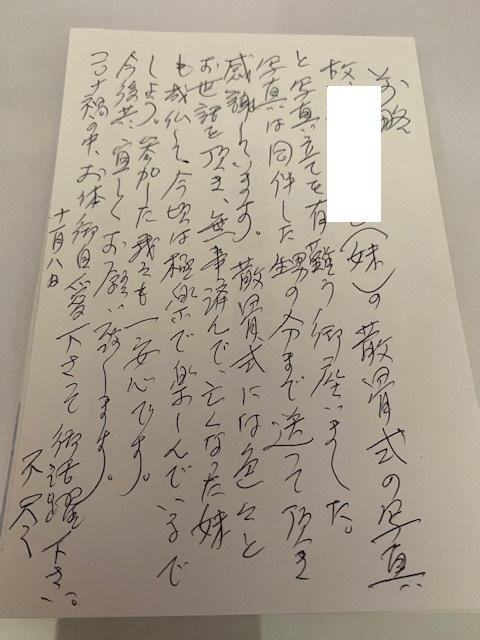 前略
故(妹)の散骨式の写真
と写真立てを有難う御座いました。
写真は同伴した甥の分まで送って頂き
感謝しています。散骨式には色々と
お世話を頂き、無事済んで、亡くなった妹
も成仏して今頃は極楽で楽しんでいるで
しょう。参加した我々も一安心です。
今後共、宜しくお願い致します。
コロナ禍の中、お体御自愛下さって御活躍下さい。
不尽
十一月八日